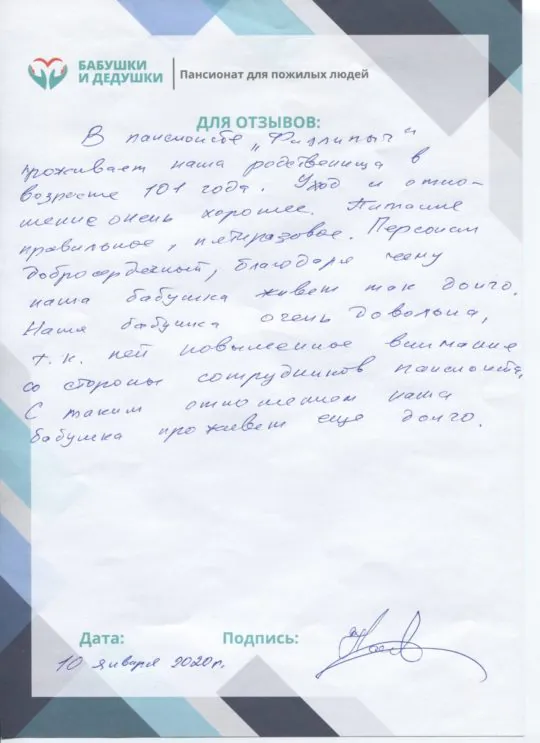 БАБУШКИ
И ДЕДУШКИ
Пансионат для пожилых людей
ДЛЯ ОТЗЫВОВ:
В пансионате „Филлипыч"
проживает наша родственница в
возрасте 101 года. Уход и отно-
шение очень хорошее. Питание
правильное, пятиразовое. Персонал
добросердечный, благодаря чему
наша бабушка живет так долго.
Наша бабушка очень довольна,
т.к. к ней повышенное внимание
со стороны сотрудников пансионата.
С таким отношением наша
бабушка проживет еще долго.
Дата: Подпись:
10 января 2020г.